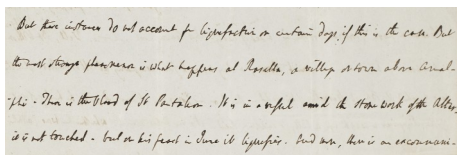 But these instances do not account for liquefaction on certain days, if this is the case. But
the most strange phenomenon is what happens at Ravello, a village or town above Amal-
phi. There is the blood of St Pantaleon. It is in a vessel amid the stone work of the Altar,
it is not touched - but on his feast in June it liquefies. And more, there is an excommuni-